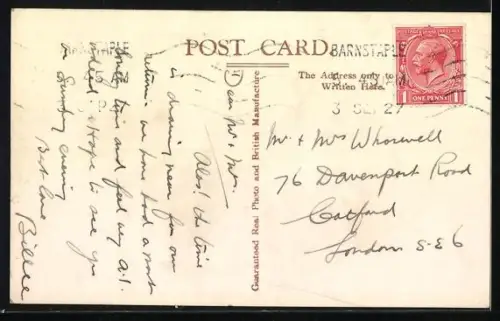 POST CARD
BARNSTAPLE
The Address only to
Written Here.
3 SEP 27
ONE PENNY
Guaranteed Real Photo and British Manufacture
Mr & Mrs Whorwell
76 Davenport Road
Catford
London S.E 6
Dear Mr & Mrs.
Alas! the time
is drawing near for our
return. We have had a most
lovely time and feel very A.1.
indeed. Hope to see you
on Sunday evening
Best love
Billee